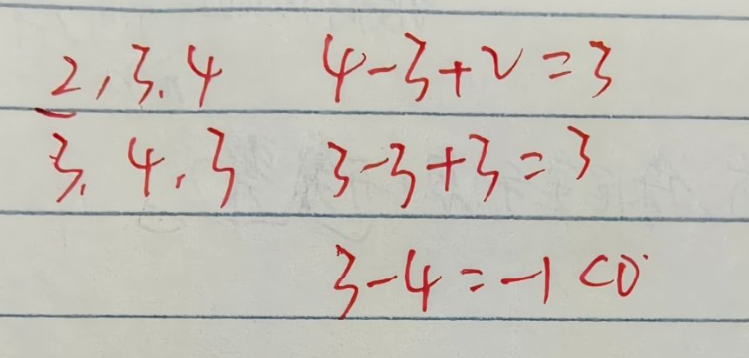 2,3.4 4-3+2=3
3.4.3 3-3+3=3
3-4=-1<0